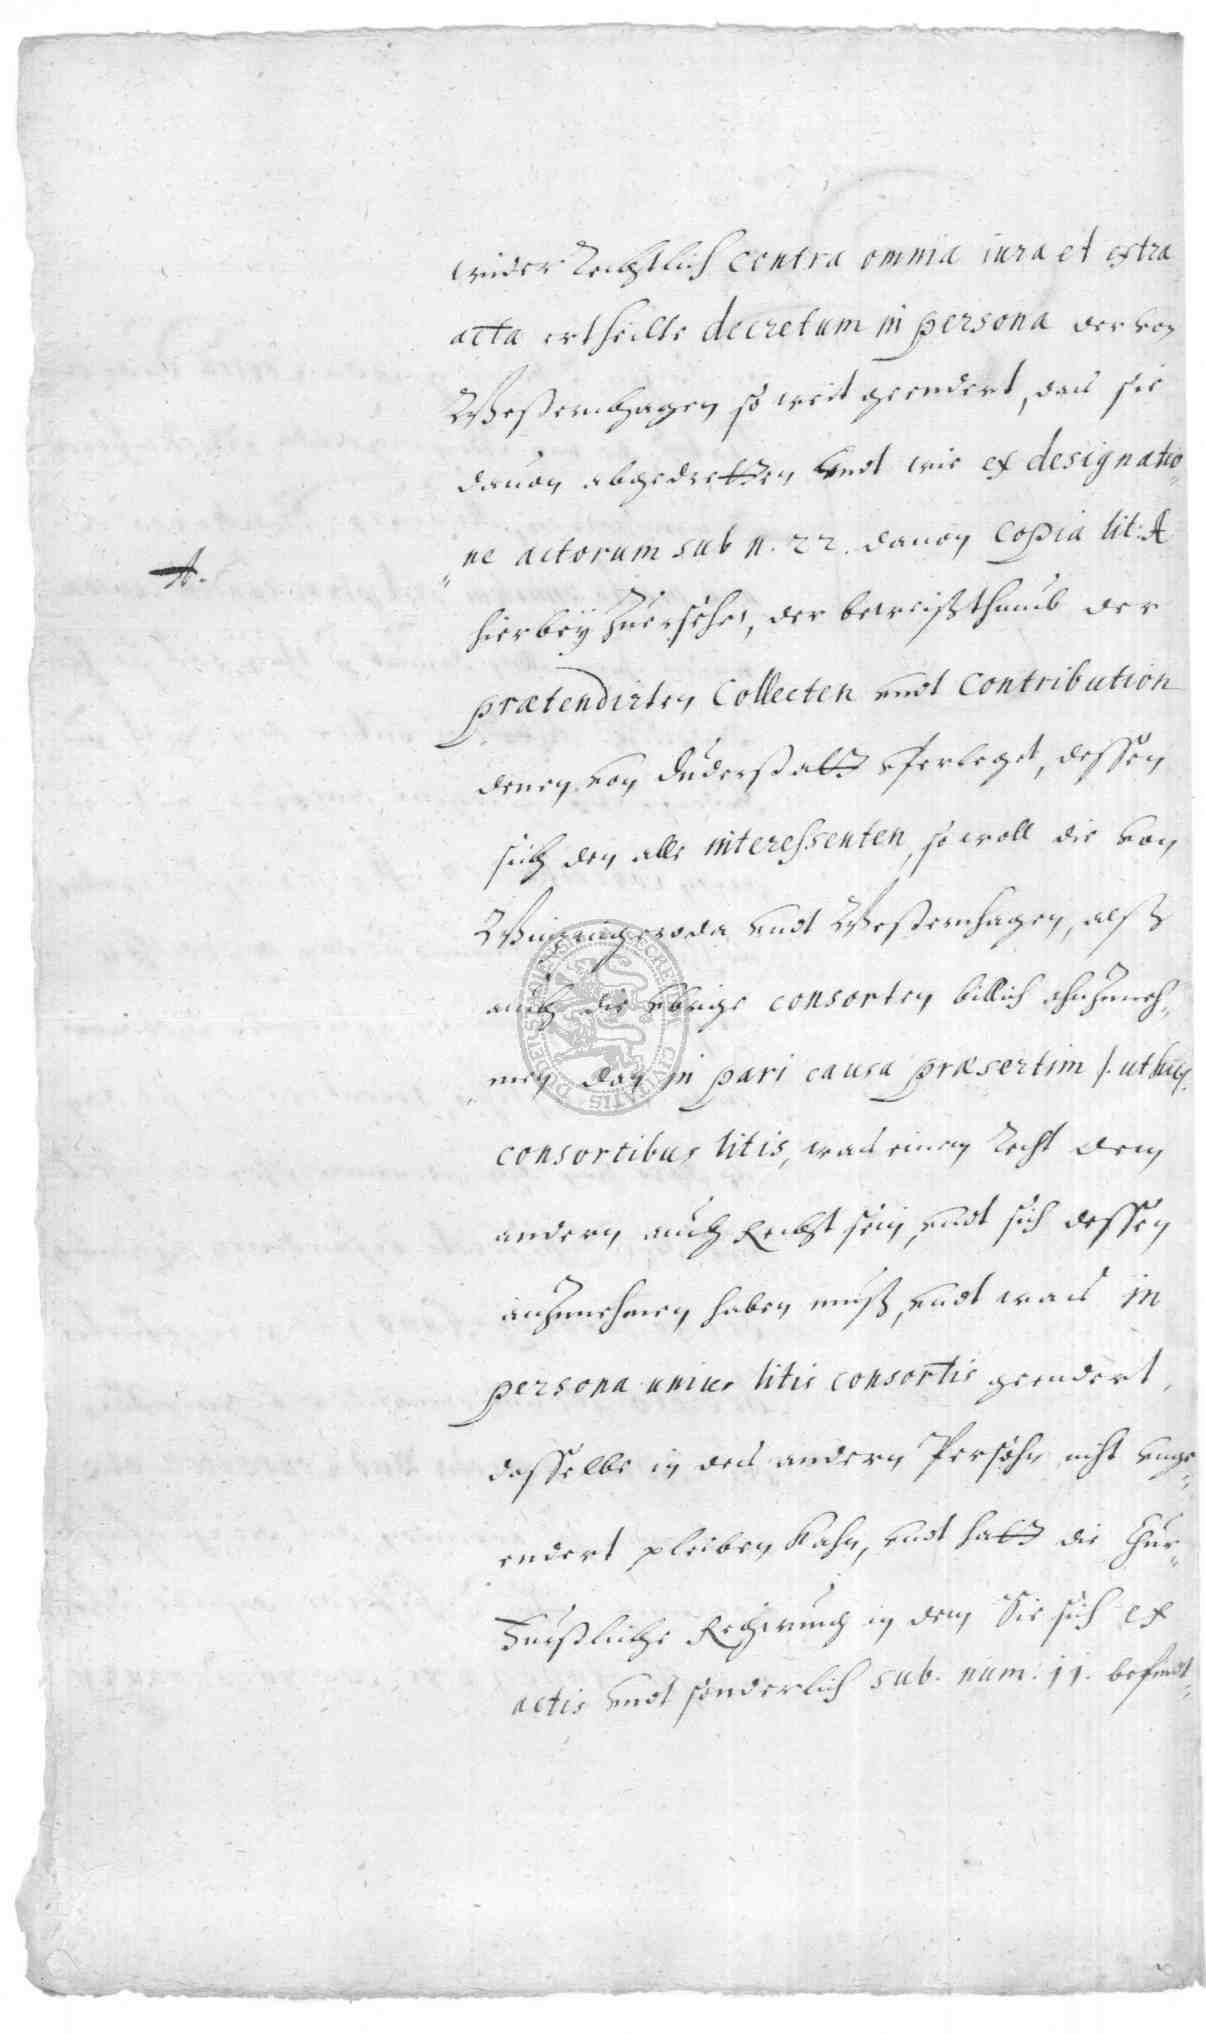 wider Rechtlich contra omnia iura et extra
acta ertheilte decretum in persona der von
Westernhagen so weit geendert, das sie
dauon abgedretten undt wie ex designatio-
ne actorum sub n. 22. dauon Copia lit: A
A.
hierbey Zuersehen, der beweißthumb der
prætendirten Collecten undt Contribution
denen von Duderstatt vferleget, dessen
sich den alle interessenten, so woll die von
Winzingeroda undt Westernhagen, alß
auch die ubrige consorten billich ahnZuneh-
men dan in pari causa præsertim /. ut hic
consortibus litis, was einem Recht dem
andern auch Recht sein, undt sich dessen
anZunehmen haben muß, undt was in
persona unius litis consortis geendert,
dasselbe in des andern Persohn nicht unge-
endert pleiben kahn, undt hatt die Chur-
Fürstliche Regirung in dem Sie sich ex
actis undt sonderlich sub. num: 11. befindt-